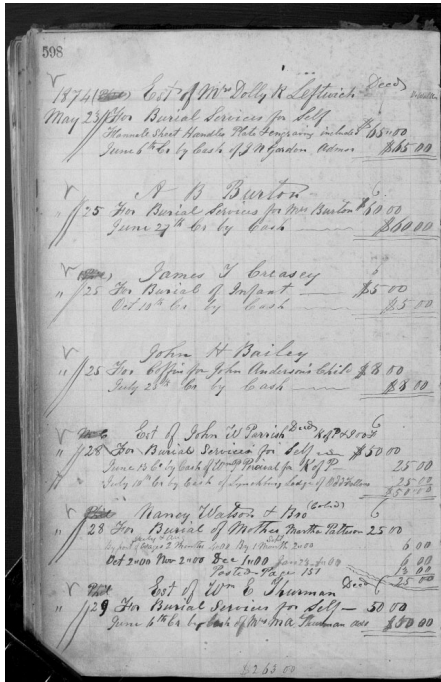 598
1874 Est of Mrs Dolly R Leftwich Deed
May 23 For Burial Services for Self
Handle Plate & engraving included $65.00
June 6th Cr by Cash of J N Gordon Admor $65.00
A B Burton
" 25 For Burial Services for Mrs Burton $60 00
June 27th Cr by Cash $60.00
James T Creasey
" 25 For Burial of Infant $5 00
Oct 10th Cr by Cash $5 00
John H Bailey
" 25 For Coffin for John Anderson's Child $8 00
July 25th Cr by Cash $8 00
Est of John W Parrish Deed K of P & I O O F
" 28 For Burial Services for Self $50 00
June 13 Cr by Cash of Wm Percival for K of P 25 00
July 10th Cr by Cash of Lynchburg Lodge of Odd Fellows 25 00
$50.00
Nancy Watson & Bro (Cold)
" 28 For Burial of Mother Martha Patterson 25 00
2 Months 4.00 By 1 Month 2.00 6 00
Oct 2.00 Nov 2.00 Dec 2.00 6 00
Posted Page 151
25 00
Est of Wm C Thurman Deed
" 29 For Burial Services for Self 50 00
June 6th Cr by Cash of Mrs M A Thurman $50 00
$263.00